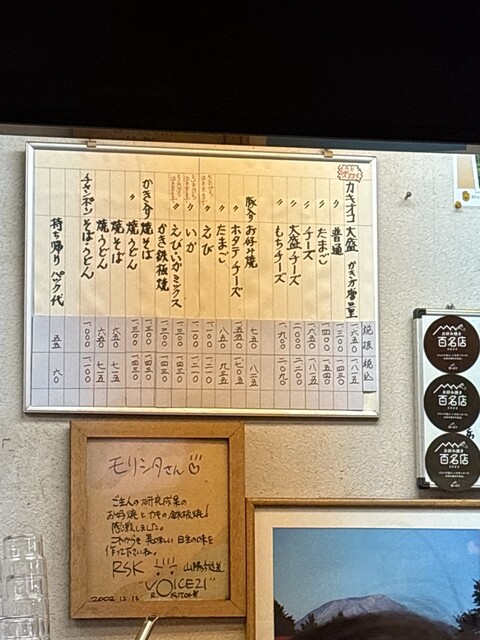 税抜 税込
カキオコ 大盛 一六五〇 一八一五
〃 普通 一三〇〇 一四三〇
〃 たまご 一四〇〇 一五四〇
〃 チーズ 一六五〇 一八一五
〃 大盛チーズ 二〇〇〇 二二〇〇
〃 もちチーズ 一九〇〇 二〇九〇
お好み焼 七五〇 八二五
〃 ホタテチーズ 一五五〇 一七〇五
〃 たまご 八五〇 九三五
〃 えび 一一〇〇 一二一〇
〃 いか 一一〇〇 一二一〇
〃 えびいかミックス 一三〇〇 一四三〇
かき鉄板焼 一三〇〇 一四三〇
かき入り焼そば 一三〇〇 一四三〇
〃 焼うどん 一三〇〇 一四三〇
焼そば 六五〇 七一五
焼うどん 六五〇 七一五
チャンポン そばうどん 一〇〇〇 一一〇〇
持ち帰り パック代 五五 六〇
お好み焼き
百名店
お好み焼き
百名店
2023
お好み焼き
百名店
2022
モリシタさん
ご主人の研究成果の
お好焼とカキの鉄板焼!
感激しました。
これからも美味しい日生の味を
作って下さいね。
RSK 山陽放送
"VOICE21"
2002.12.13